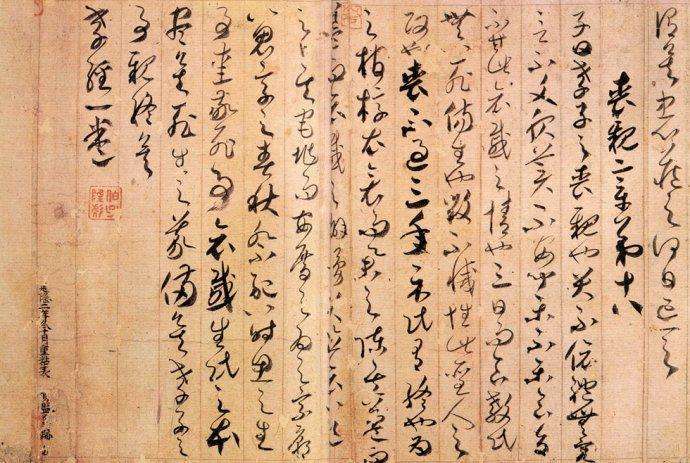 謂矣中心藏之何日忘之
喪親章第十八
子曰孝子之喪親也哭不偯禮無容
言不文服美不安聞樂不樂食旨
不甘此哀戚之情也三日而食教民
無以死傷生也毀不滅性此聖人之
政也喪不過三年示民有終也為
之棺椁衣衾而舉之陳其簠簋而
哀戚之擗踊哭泣哀以送
之卜其宅兆而安厝之為之宗廟
以鬼享之春秋祭祀以時思之生
事愛敬死事哀戚生民之本
盡矣死生之義備矣孝子之
事親終矣
孝經一卷
建隆二年冬十月重粘表